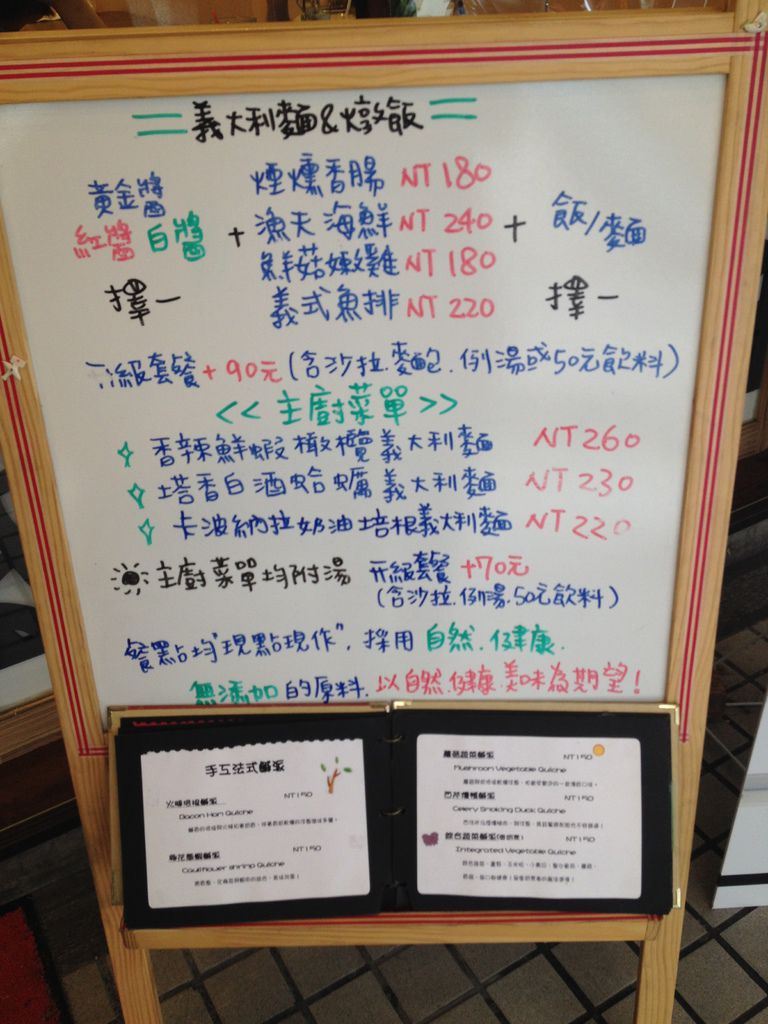 義大利麵&燉飯
黃金醬
紅醬 白醬
擇一
+
煙燻香腸 NT 180
漁夫海鮮 NT 240
鮮菇嫩雞 NT 180
義式魚排 NT 220
+
飯/麵
擇一
升級套餐+90元(含沙拉.麥包.例湯或50元飲料)
<<主廚菜單>>
香辣鮮蝦橄欖義大利麵 NT260
塔香白酒蛤蠣義大利麵 NT230
卡波納拉奶油培根義大利麵 NT220
主廚菜單均附湯 升級套餐+70元
(含沙拉.例湯.50元飲料)
餐點均"現點現作", 採用 自然.健康.
無添加的原料.以自然.健康.美味為期望!
手工法式鹹派
火腿培根鹹派 NT150
Bacon Ham Quiche
NT150
Cauliflower shrimp Quiche
蘑菇蔬菜鹹派 NT150
Mushroom Vegetable Quiche
西芹燻鴨鹹派 NT150
Celery Smoking Duck Quiche
綜合蔬菜鹹派 NT150
Integrated Vegetable Quiche